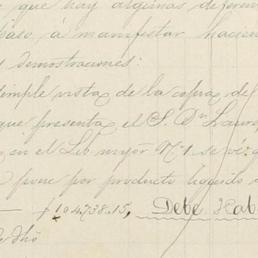 que hay algunas deferen
paso á manifestar hacien
y demostraciones:
emple vista de la copia del
que presenta el S. Dn Laure
en el Lib mayor Nº 1 se ve q
pone por producto liquido
f 104.738.15, Debe Hab